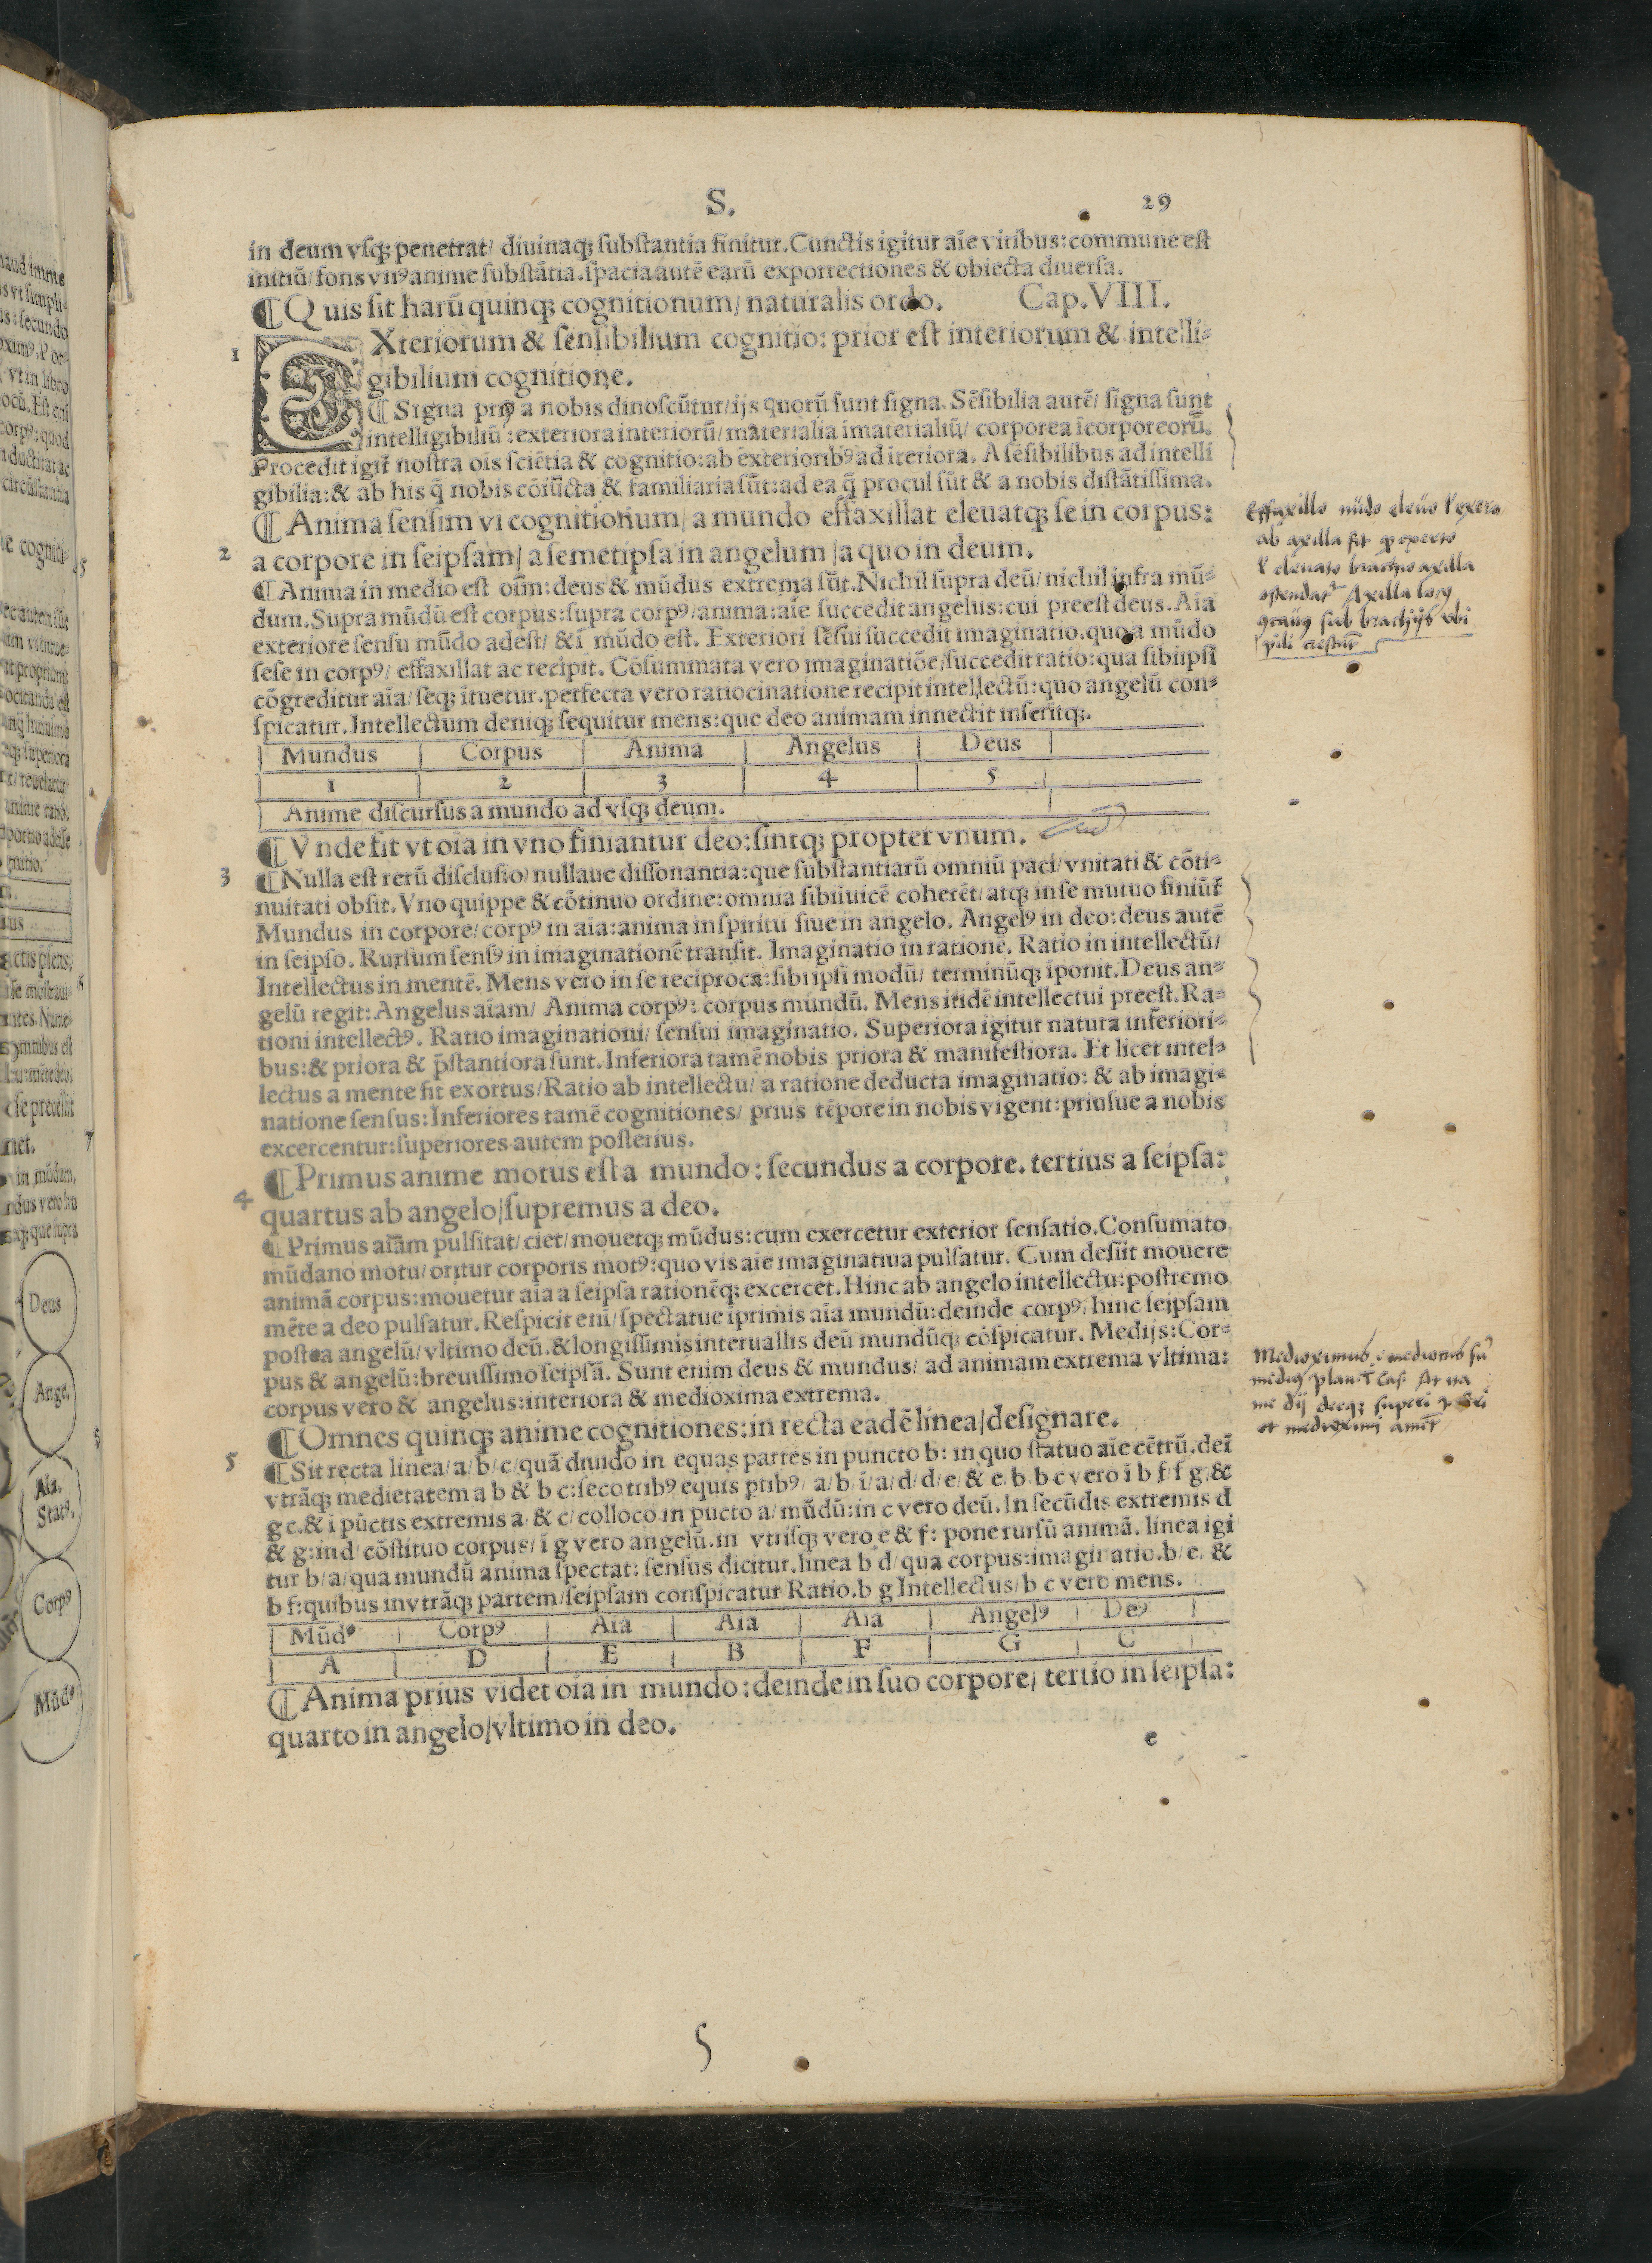 S. 29
in deum vſqꝫ penetrat/ diuinaqꝫ ſubſtantia finitur. Cunctis igitur aīe viribus: commune eſt
initiū/ fons vnꝰ anime ſubſtātia. ſpacia autē earū exporrectiones & obiecta diuerſa.
¶ Quis ſit harū quinqꝫ cognitionum/ naturalis ordo. Cap. VIII.
1 EXteriorum & ſenſibilium cognitio: prior eſt interiorum & intelli⸗
gibilium cognitione.
¶ Signa priꝰ a nobis dinoſcūtur/ ijs quorū ſunt ſigna. Sēſibilia autē/ ſigna ſunt
intelligibiliū: exteriora interiorū/ materialia imaterialiū/ corporea īcorporeorū.
Procedit igit̄ noſtra oīs ſciētia & cognitio: ab exterioribꝰ ad īteriora. A ſēſibilibus ad intelli
gibilia: & ab his q̄ nobis cōiūcta & familiaria ſūt: ad ea q̄ procul ſūt & a nobis diſtātiſſima.
¶ Anima ſenſim vi cognitionum/ a mundo effaxillat eleuatqꝫ ſe in corpus:
2 a corpore in ſeipſam/ a ſemetipſa in angelum/ a quo in deum.
¶ Anima in medio eſt oīm: deus & mūdus extrema ſūt. Nichil ſupra deū/ nichil infra mū⸗
dum. Supra mūdū eſt corpus: ſupra corpꝰ/ anima: aīe ſuccedit angelus: cui preeſt deus. Aīa
exteriore ſenſu mūdo adeſt/ & ī mūdo eſt. Exteriori ſēſui ſuccedit imaginatio. quo a mūdo
ſeſe in corpꝰ/ effaxillat ac recipit. Cōſummata vero imaginatiōe/ ſuccedit ratio: qua ſibiipſi
cōgreditur aīa/ ſeqꝫ ītuetur. perfecta vero ratiocinatione recipit intellectū: quo angelū con⸗
ſpicatur. Intellectum deniqꝫ ſequitur mens: que deo animam innectit inſeritqꝫ.
Mundus | Corpus | Anima | Angelus | Deus
1 | 2 | 3 | 4 | 5
Anime diſcurſus a mundo ad vſqꝫ deum.
¶ Vnde fit vt oīa in vno finiantur deo: ſintqꝫ propter vnum.
3 ¶ Nulla eſt rerū diſcluſio/ nullaue diſſonantia: que ſubſtantiarū omniū paci/ vnitati & cōti⸗
nuitati obſit. Vno quippe & cōtinuo ordine: omnia ſibiīuicē coherēt/ atqꝫ in ſe mutuo finiūt̄
Mundus in corpore/ corpꝰ in aīa: anima in ſpiritu ſiue in angelo. Angelꝰ in deo: deus autē
in ſeipſo. Rurſum ſenſꝰ in imaginationē tranſit. Imaginatio in rationē. Ratio in intellectū/
Intellectus in mentē. Mens vero in ſe reciproca: ſibi ipſi modū/ terminūqꝫ īponit. Deus an⸗
gelū regit: Angelus aīam/ Anima corpꝰ: corpus mundū. Mens itidē intellectui preeſt. Ra⸗
tioni intellectꝰ. Ratio imaginationi/ ſenſui imaginatio. Superiora igitur natura inferiori⸗
bus: & priora & p̄ſtantiora ſunt. Inferiora tamē nobis priora & manifeſtiora. Et licet intel⸗
lectus a mente ſit exortus/ Ratio ab intellectu/ a ratione deducta imaginatio: & ab imagi⸗
natione ſenſus: Inferiores tamē cognitiones/ prius tēpore in nobis vigent: priuſue a nobis
excercentur: ſuperiores autem poſterius.
¶ Primus anime motus eſt a mundo: ſecundus a corpore. tertius a ſeipſa:
4 quartus ab angelo/ ſupremus a deo.
¶ Primus aīam pulſitat/ ciet/ mouetqꝫ mūdus: cum exercetur exterior ſenſatio. Conſumato
mūdano motu/ oritur corporis motꝰ: quo vis aīe imaginatiua pulſatur. Cum deſiit mouere
animā corpus: mouetur aīa a ſeipſa rationēqꝫ excercet. Hinc ab angelo intellectu: poſtremo
mēte a deo pulſatur. Reſpicit enī/ ſpectatue īprimis aīa mundū: deinde corpꝰ/ hinc ſeipſam
poſtea angelū/ vltimo deū. & longiſſimis interuallis deū mundūqꝫ cōſpicatur. Medijs: Cor⸗
pus & angelū: breuiſſimo ſeipſā. Sunt enim deus & mundus/ ad animam extrema vltima:
corpus vero & angelus: interiora & medioxima extrema.
¶ Omnes quinqꝫ anime cognitiones: in recta eadē linea/ deſignare.
5 ¶ Sit recta linea/ a/ b/ c/ quā diuido in equas partes in puncto b: in quo ſtatuo aīe cētrū. deī
vtrāqꝫ medietatem a b & b c: ſeco tribꝰ equis ptibꝰ/ a/ b/ ī/ a/ d/ d/ e/ & e/ b. b c vero ī b f/ f g/ &
g c. & ī pūctis extremis a & c/ colloco in pūcto a/ mūdū: in c vero deū. In ſecūdis extremis d
& g: in d/ cōſtituo corpus/ ī g vero angelū. in vtriſqꝫ vero e & f: pone rurſū animā. linea igi
tur b/ a/ qua mundū anima ſpectat: ſenſus dicitur. linea b d/ qua corpus: imaginatio. b/ e/ &
b f: quibus in vtrāqꝫ partem/ ſeipſam conſpicatur Ratio. b g Intellectus/ b c vero mens.
Mūdꝰ | Corpꝰ | Aīa | Aīa | Aīa | Angelꝰ | Deꝰ
A | D | E | B | F | G | C
¶ Anima prius videt oīa in mundo: deinde in ſuo corpore/ tertio in ſeipſa:
quarto in angelo/ vltimo in deo.
e
Effaxillo nudo eleuo
ab axilla fit
brachio axilla
Axilla
sub brachijs vbi
pili
Medioximus
superi
et medioximi
5
Deus
Angel
Aīa.
Statꝰ.
Corpꝰ
Mūdꝰ